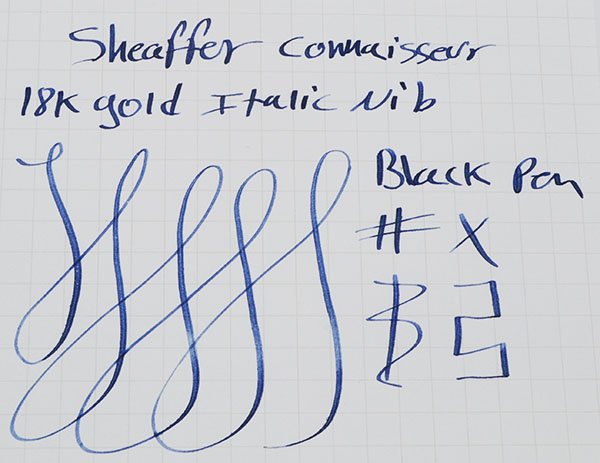 Sheaffer Connaisseur
18K gold Italic Nib
Black Pen
# X